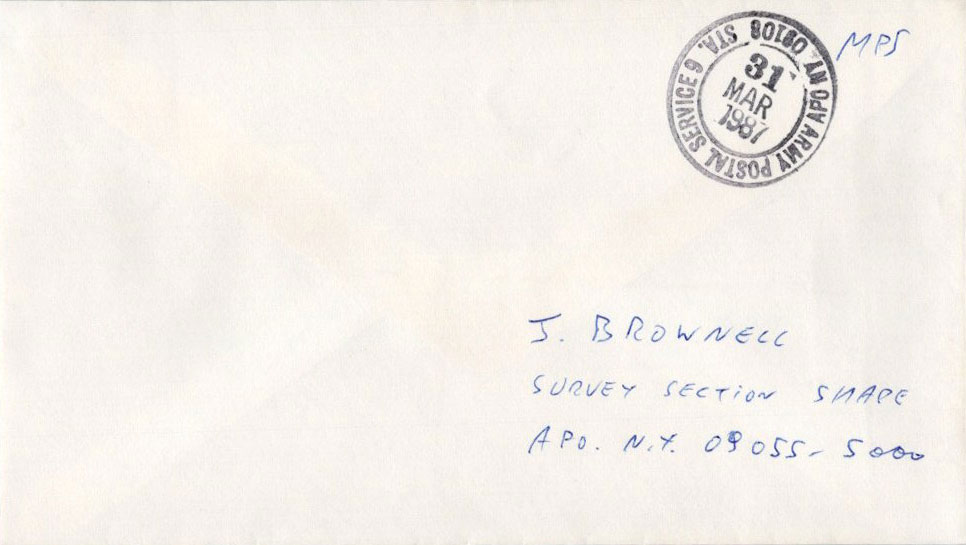 MPS
ARMY POSTAL SERVICE 6 STA. 09108 APO NY.
31
MAR
1987
J. BROWNELL
SURVEY SECTION SHAPE
APO. N.Y. 09055-5000